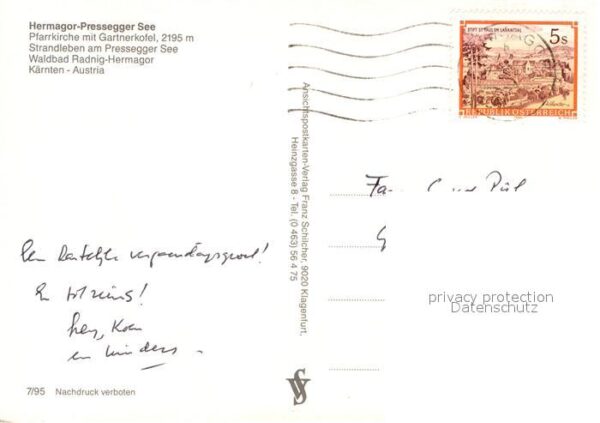 Hermagor-Pressegger See
Pfarrkirche mit Gartnerkofel, 2195 m
Strandleben am Pressegger See
Waldbad Radnig-Hermagor
Kärnten - Austria
STIFT ST. PAUL IM LAVANTTAL
5s
REPUBLIK ÖSTERREICH
Ansichtspostkarten-Verlag Franz Schilcher, 9020 Klagenfurt,
Heinzgasse 8 - Tel. (0 463) 56 4 75
Fa
Een hartelijke verjaardagsgroet!
En tot ziens!
en kinders.
privacy protection
Datenschutz
7/95 Nachdruck verboten